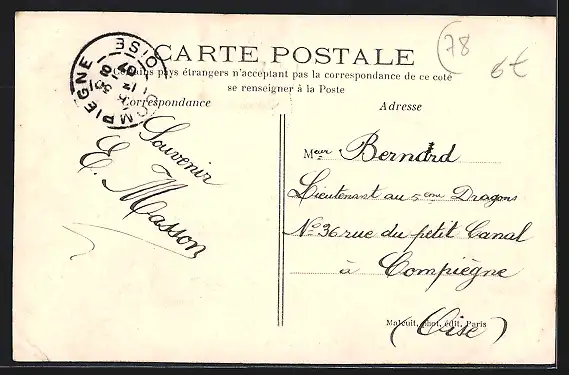 CARTE POSTALE
Certains pays étrangers n'acceptant pas la correspondance de ce coté
se renseigner à la Poste
Correspondance
Adresse
78
6€
COMPIEGNE
OISE
Souvenir
E. Masson
Mʳ Bernard
Lieutenant au 5ᵉᵐᵉ Dragons
Nº 36 rue du petit Canal
à Compiègne
(Oise)
Matcuit, phot. édit. Paris